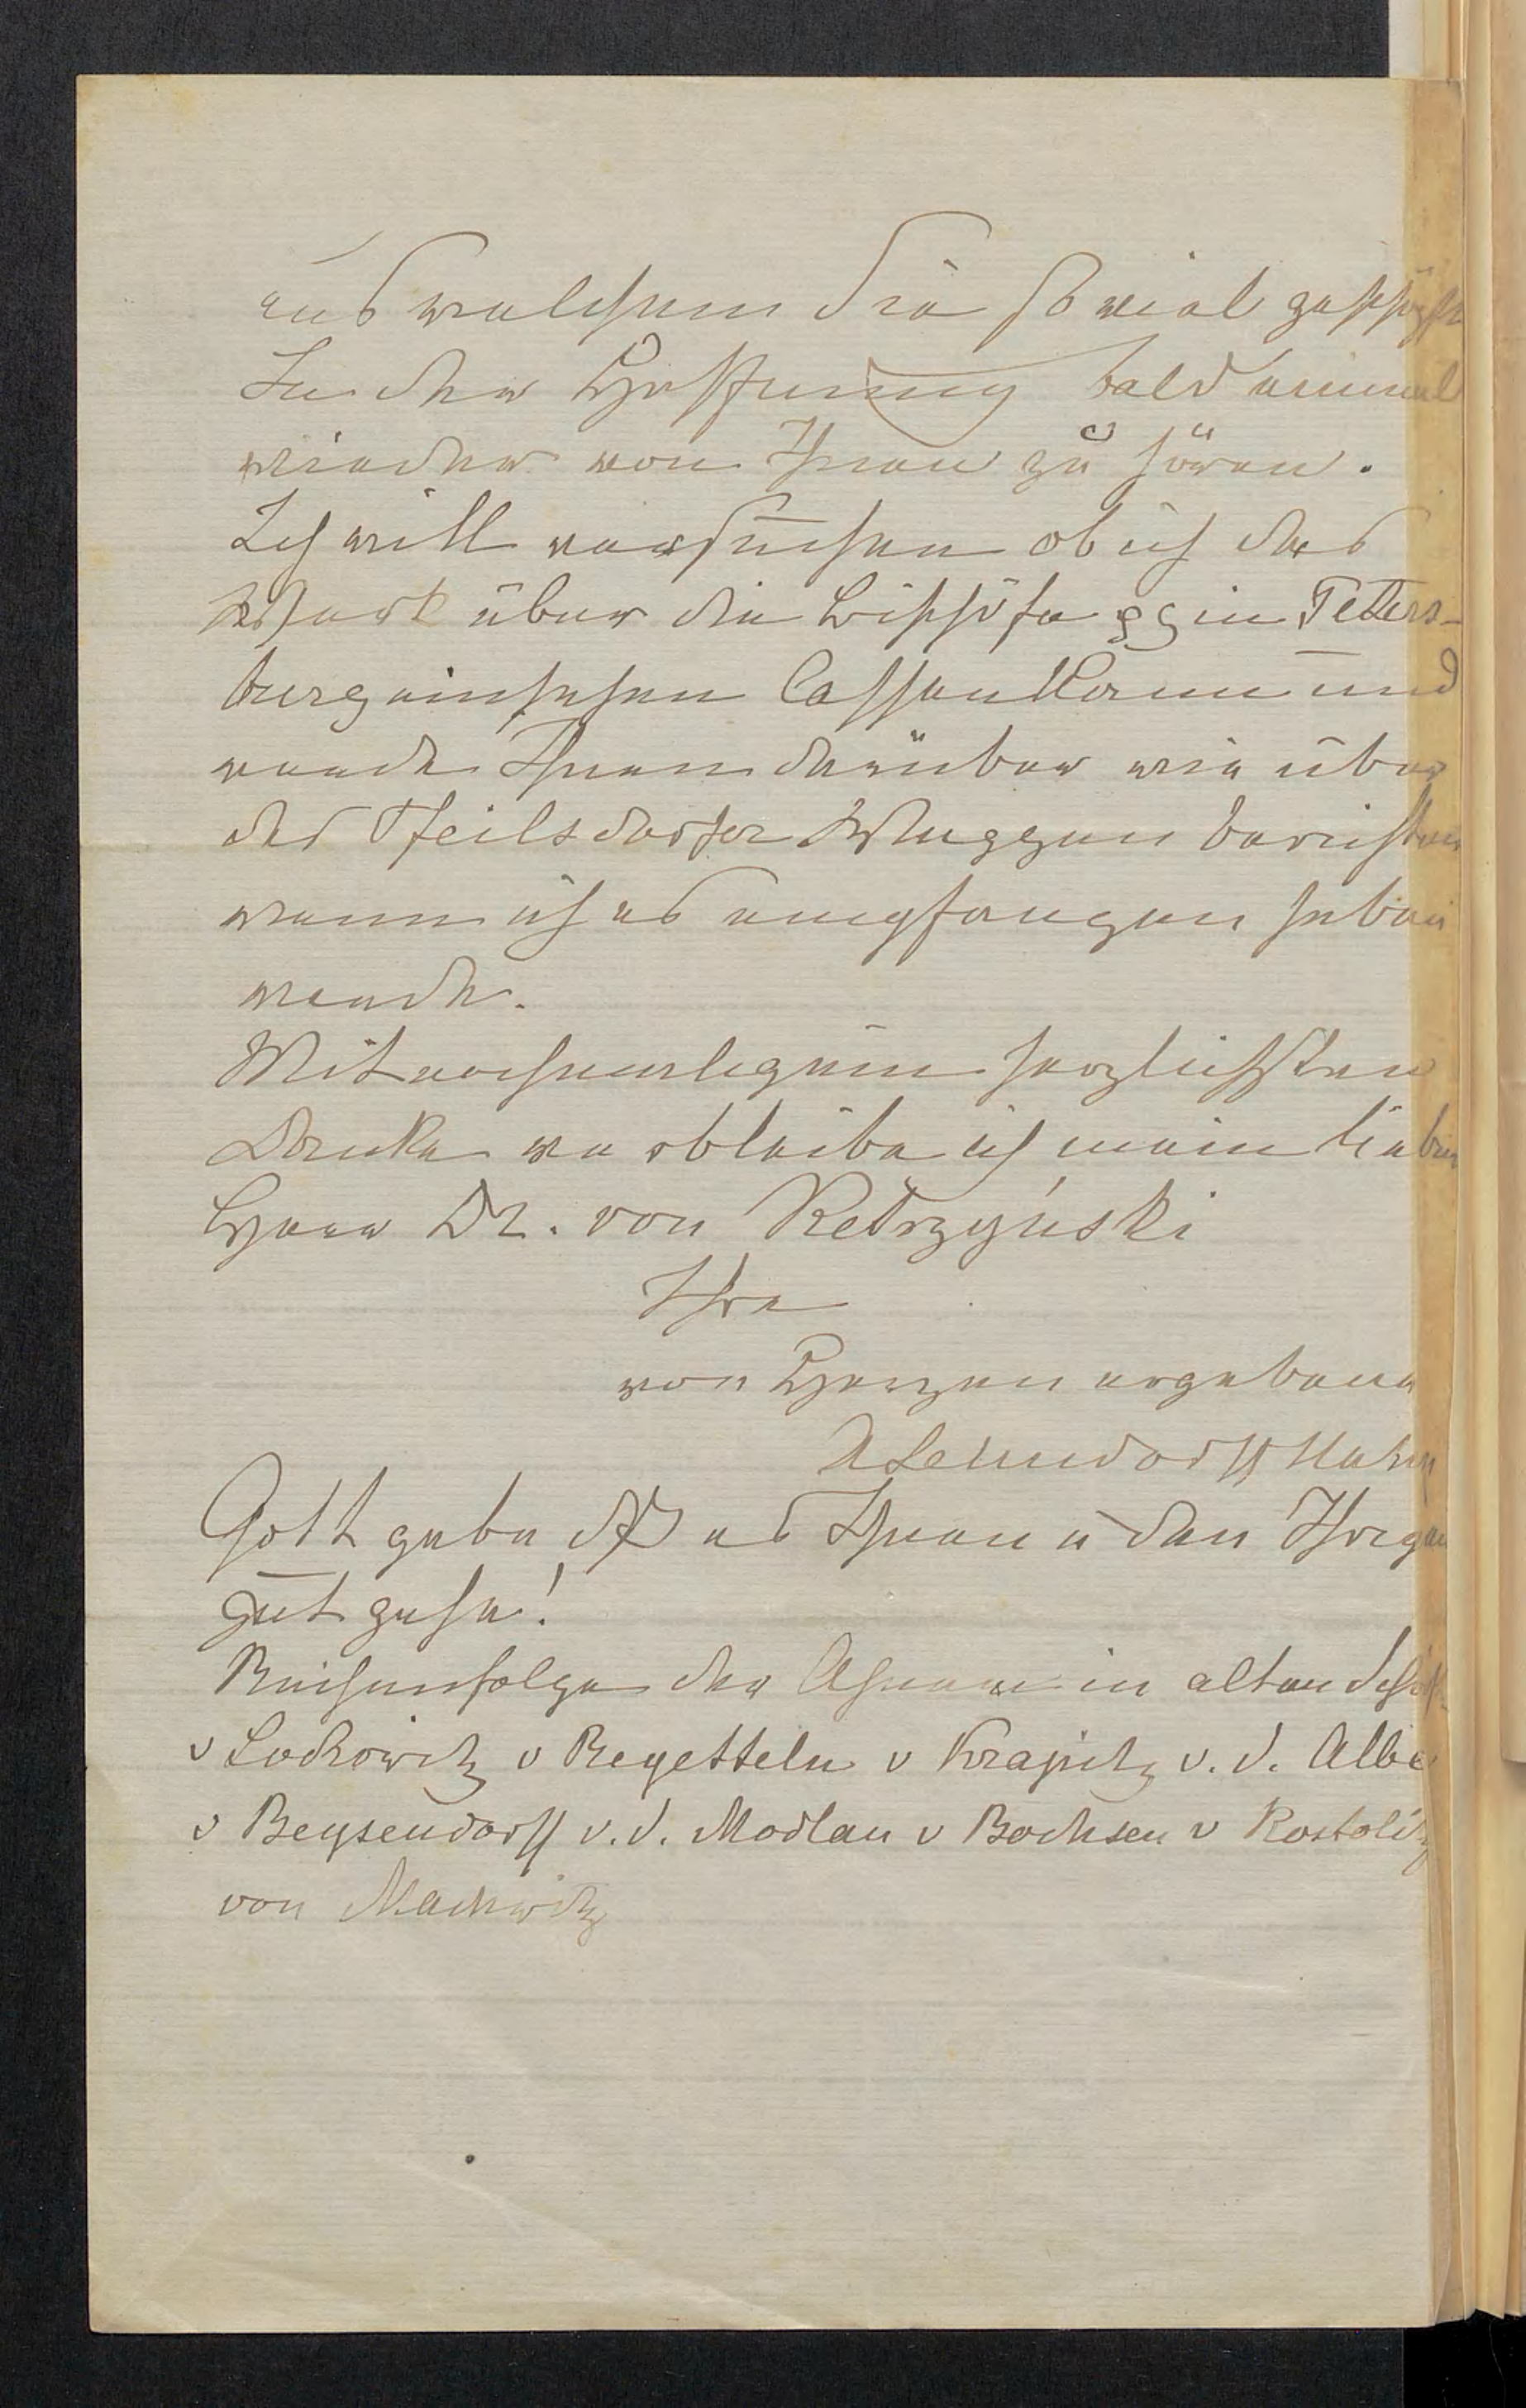 aus welchem Sie so viel geschöpft
In der Hoffnung bald einmal
wieder von Ihnen zu hören.
Ich will versuchen ob ich das
Werk über die Bischöfe pp in Peters-
burg einsehen lassen kann und
werde Ihnen darüber wie über
das Pfeilsdorfer Wappen berichten
wenn ich es empfangen haben
werde.
Mit nochmaligem herzlichsten
Danke verbleibe ich mein lieber
Herr Dr. von Kętrzyński
Ihre
von Herzen ergebene
A Lehndorff
Gott gebe daß es Ihnen u den Ihrigen
gut gehe!
Reihenfolge der Ahnen in alten
v Lockowitz v Regetteln v Krapitz v. d. Albe
v Beysendorff v. d. Modlau v Bochsen v
von Machwitz